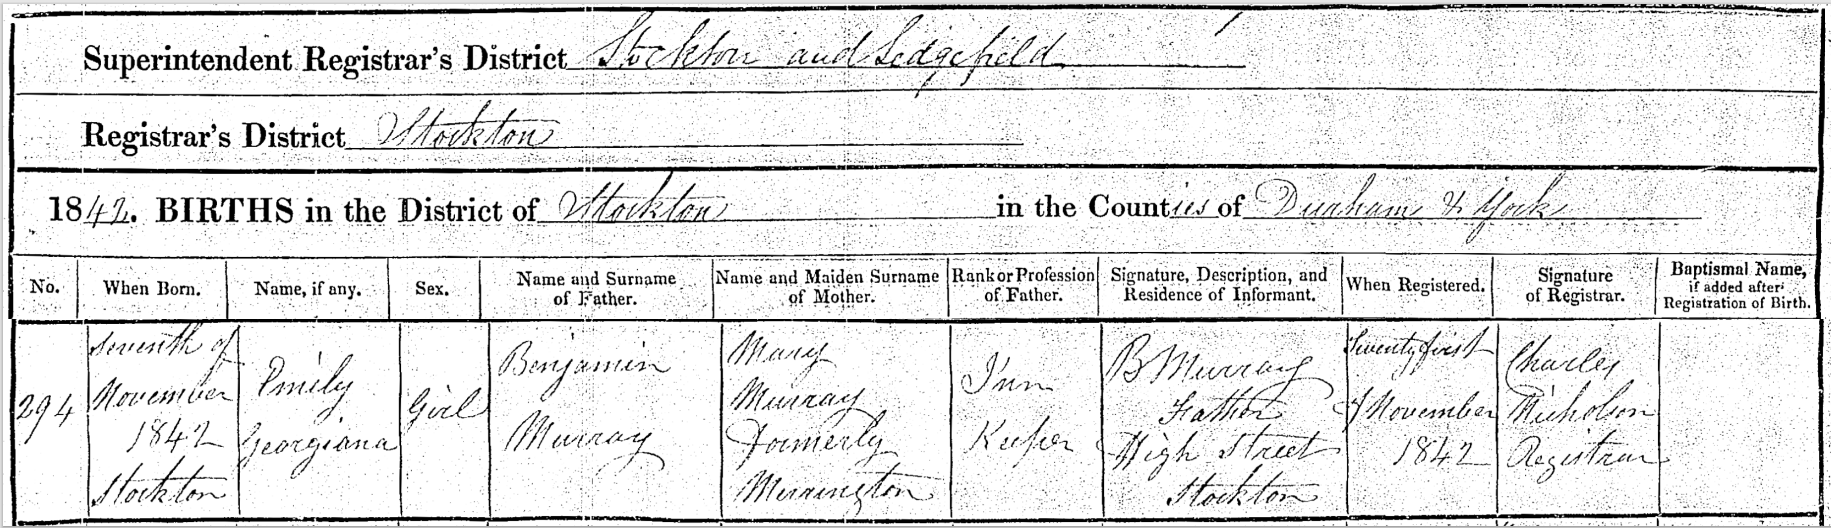 Superintendent Registrar's District Stockton and Sedgefield
Registrar's District Stockton
1842. BIRTHS in the District of Stockton in the Counties of Durham & York
No.
When Born.
Name, if any.
Sex.
Name and Surname
of Father.
Name and Maiden Surname
of Mother.
Rank or Profession
of Father.
Signature, Description, and
Residence of Informant.
When Registered.
Signature
of Registrar.
Baptismal Name,
if added after
Registration of Birth.
294
Seventh of
November
1842
Stockton
Emily
Georgiana
Girl
Benjamin
Murray
Mary
Murray
Formerly
Merrington
Inn
Keeper
B Murray
Father
High Street
Stockton
Twenty first
of November
1842
Charles
Nicholson
Registrar